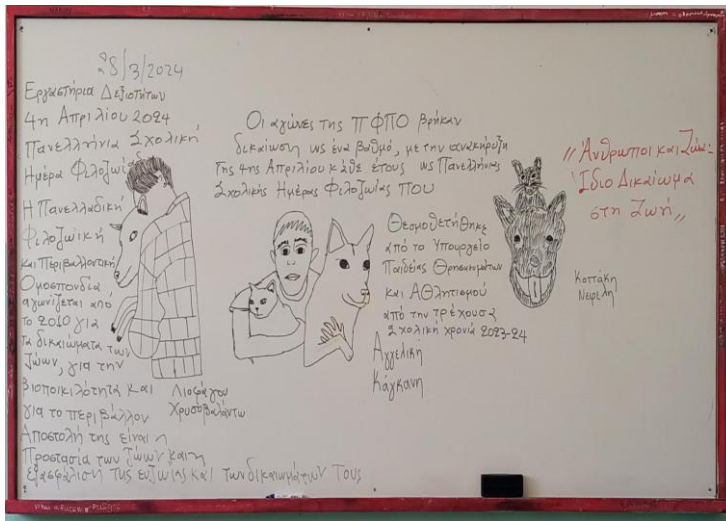 28/3/2024
Εργαστήρια Δεξιοτήτων
4η Απριλίου 2024
Πανελλήνια Σχολική
Ημέρα Φιλοζωίας
Η Πανελλαδική
Φιλοζωική
και Περιβαλλοντική
Ομοσπονδία
αγωνίζεται από
το 2010 για
τα δικαιώματα των
ζώων, για την
βιοποικιλότητα και
για το περιβάλλον
Αποστολή της είναι η
Προστασία των ζώων και η
εξασφάλιση της ευζωίας και των δικαιωμάτων τους
Λιοφάγου
Χρυσοβαλάντω
Οι αγώνες της ΠΦΠΟ βρήκαν
δικαίωση ως ένα βαθμό, με την ανακήρυξη
της 4ης Απριλίου κάθε έτους ως Πανελλήνιας
Σχολικής Ημέρας Φιλοζωίας που
Θεσμοθετήθηκε
από το Υπουργείο
Παιδείας Θρησκευμάτων
και Αθλητισμού
από την τρέχουσα
Σχολική χρονιά 2023-24
Αγγελική
Κάγκανη
"Άνθρωποι και Ζώα:
Ίδιο Δικαίωμα
στη Ζωή"
Κοττάκη
Νεφέλη